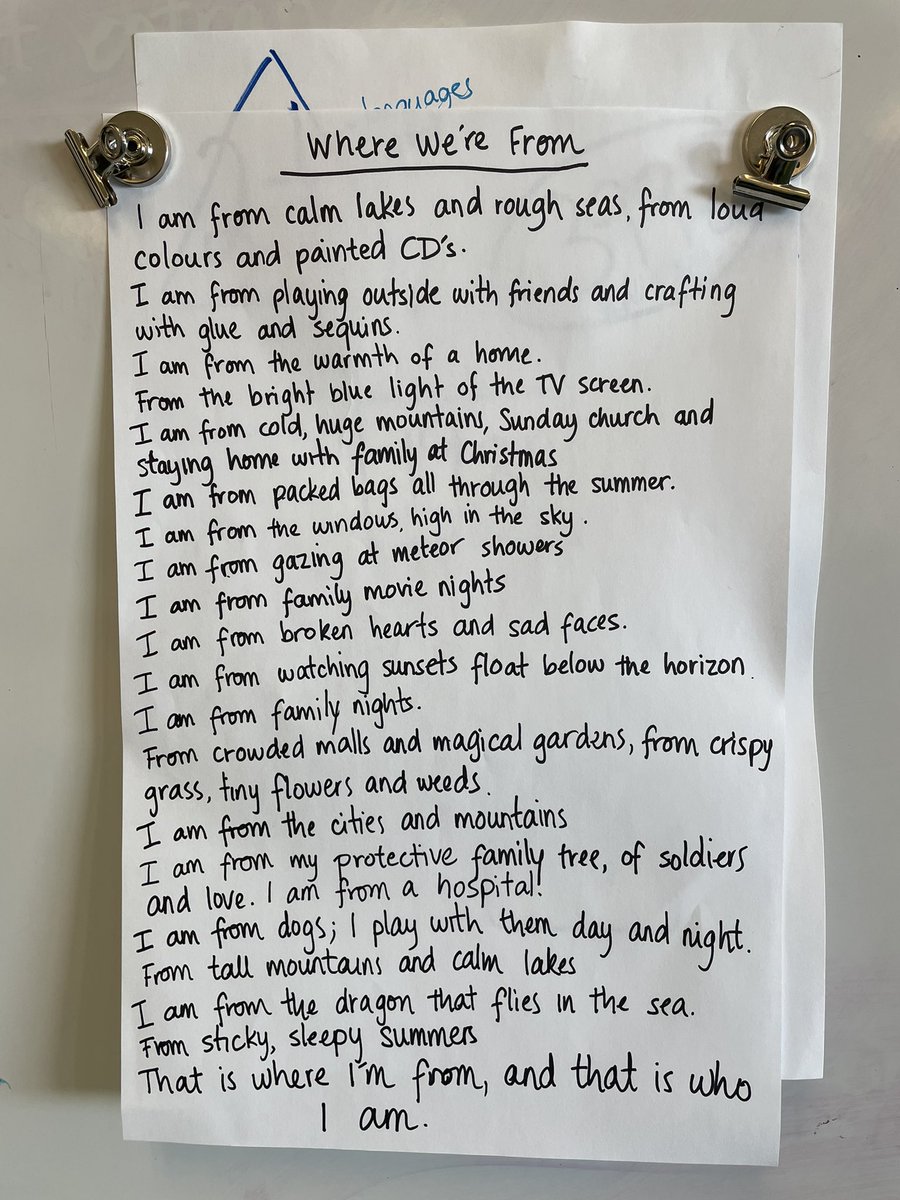 languages
Where We're From
I am from calm lakes and rough seas, from loud
colours and painted CD's.
I am from playing outside with friends and crafting
with glue and sequins.
I am from the warmth of a home.
From the bright blue light of the TV screen.
I am from cold, huge mountains, Sunday church and
staying home with family at Christmas
I am from packed bags all through the summer.
I am from the windows, high in the sky.
I am from gazing at meteor showers
I am from family movie nights
I am from broken hearts and sad faces.
I am from watching sunsets float below the horizon.
I am from family nights.
From crowded malls and magical gardens, from crispy
grass, tiny flowers and weeds.
I am from the cities and mountains
I am from my protective family tree, of soldiers
and love. I am from a hospital!
I am from dogs; I play with them day and night.
From tall mountains and calm lakes
I am from the dragon that flies in the sea.
From sticky, sleepy summers
That is where I'm from, and that is who
I am.